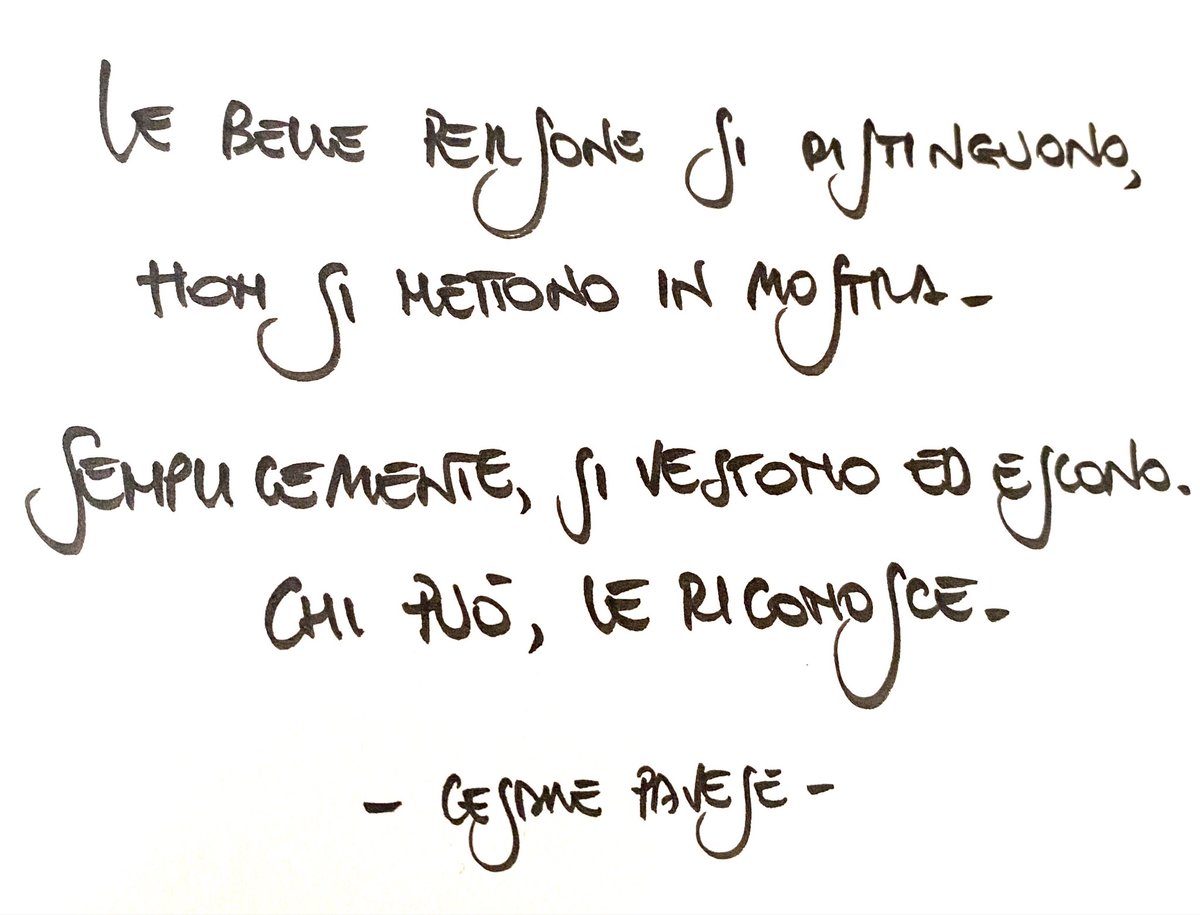 LE BELLE PERSONE SI DISTINGUONO,
NON SI METTONO IN MOSTRA -
SEMPLICEMENTE, SI VESTONO ED ESCONO.
CHI PUÒ, LE RICONOSCE -
- CESARE PAVESE -